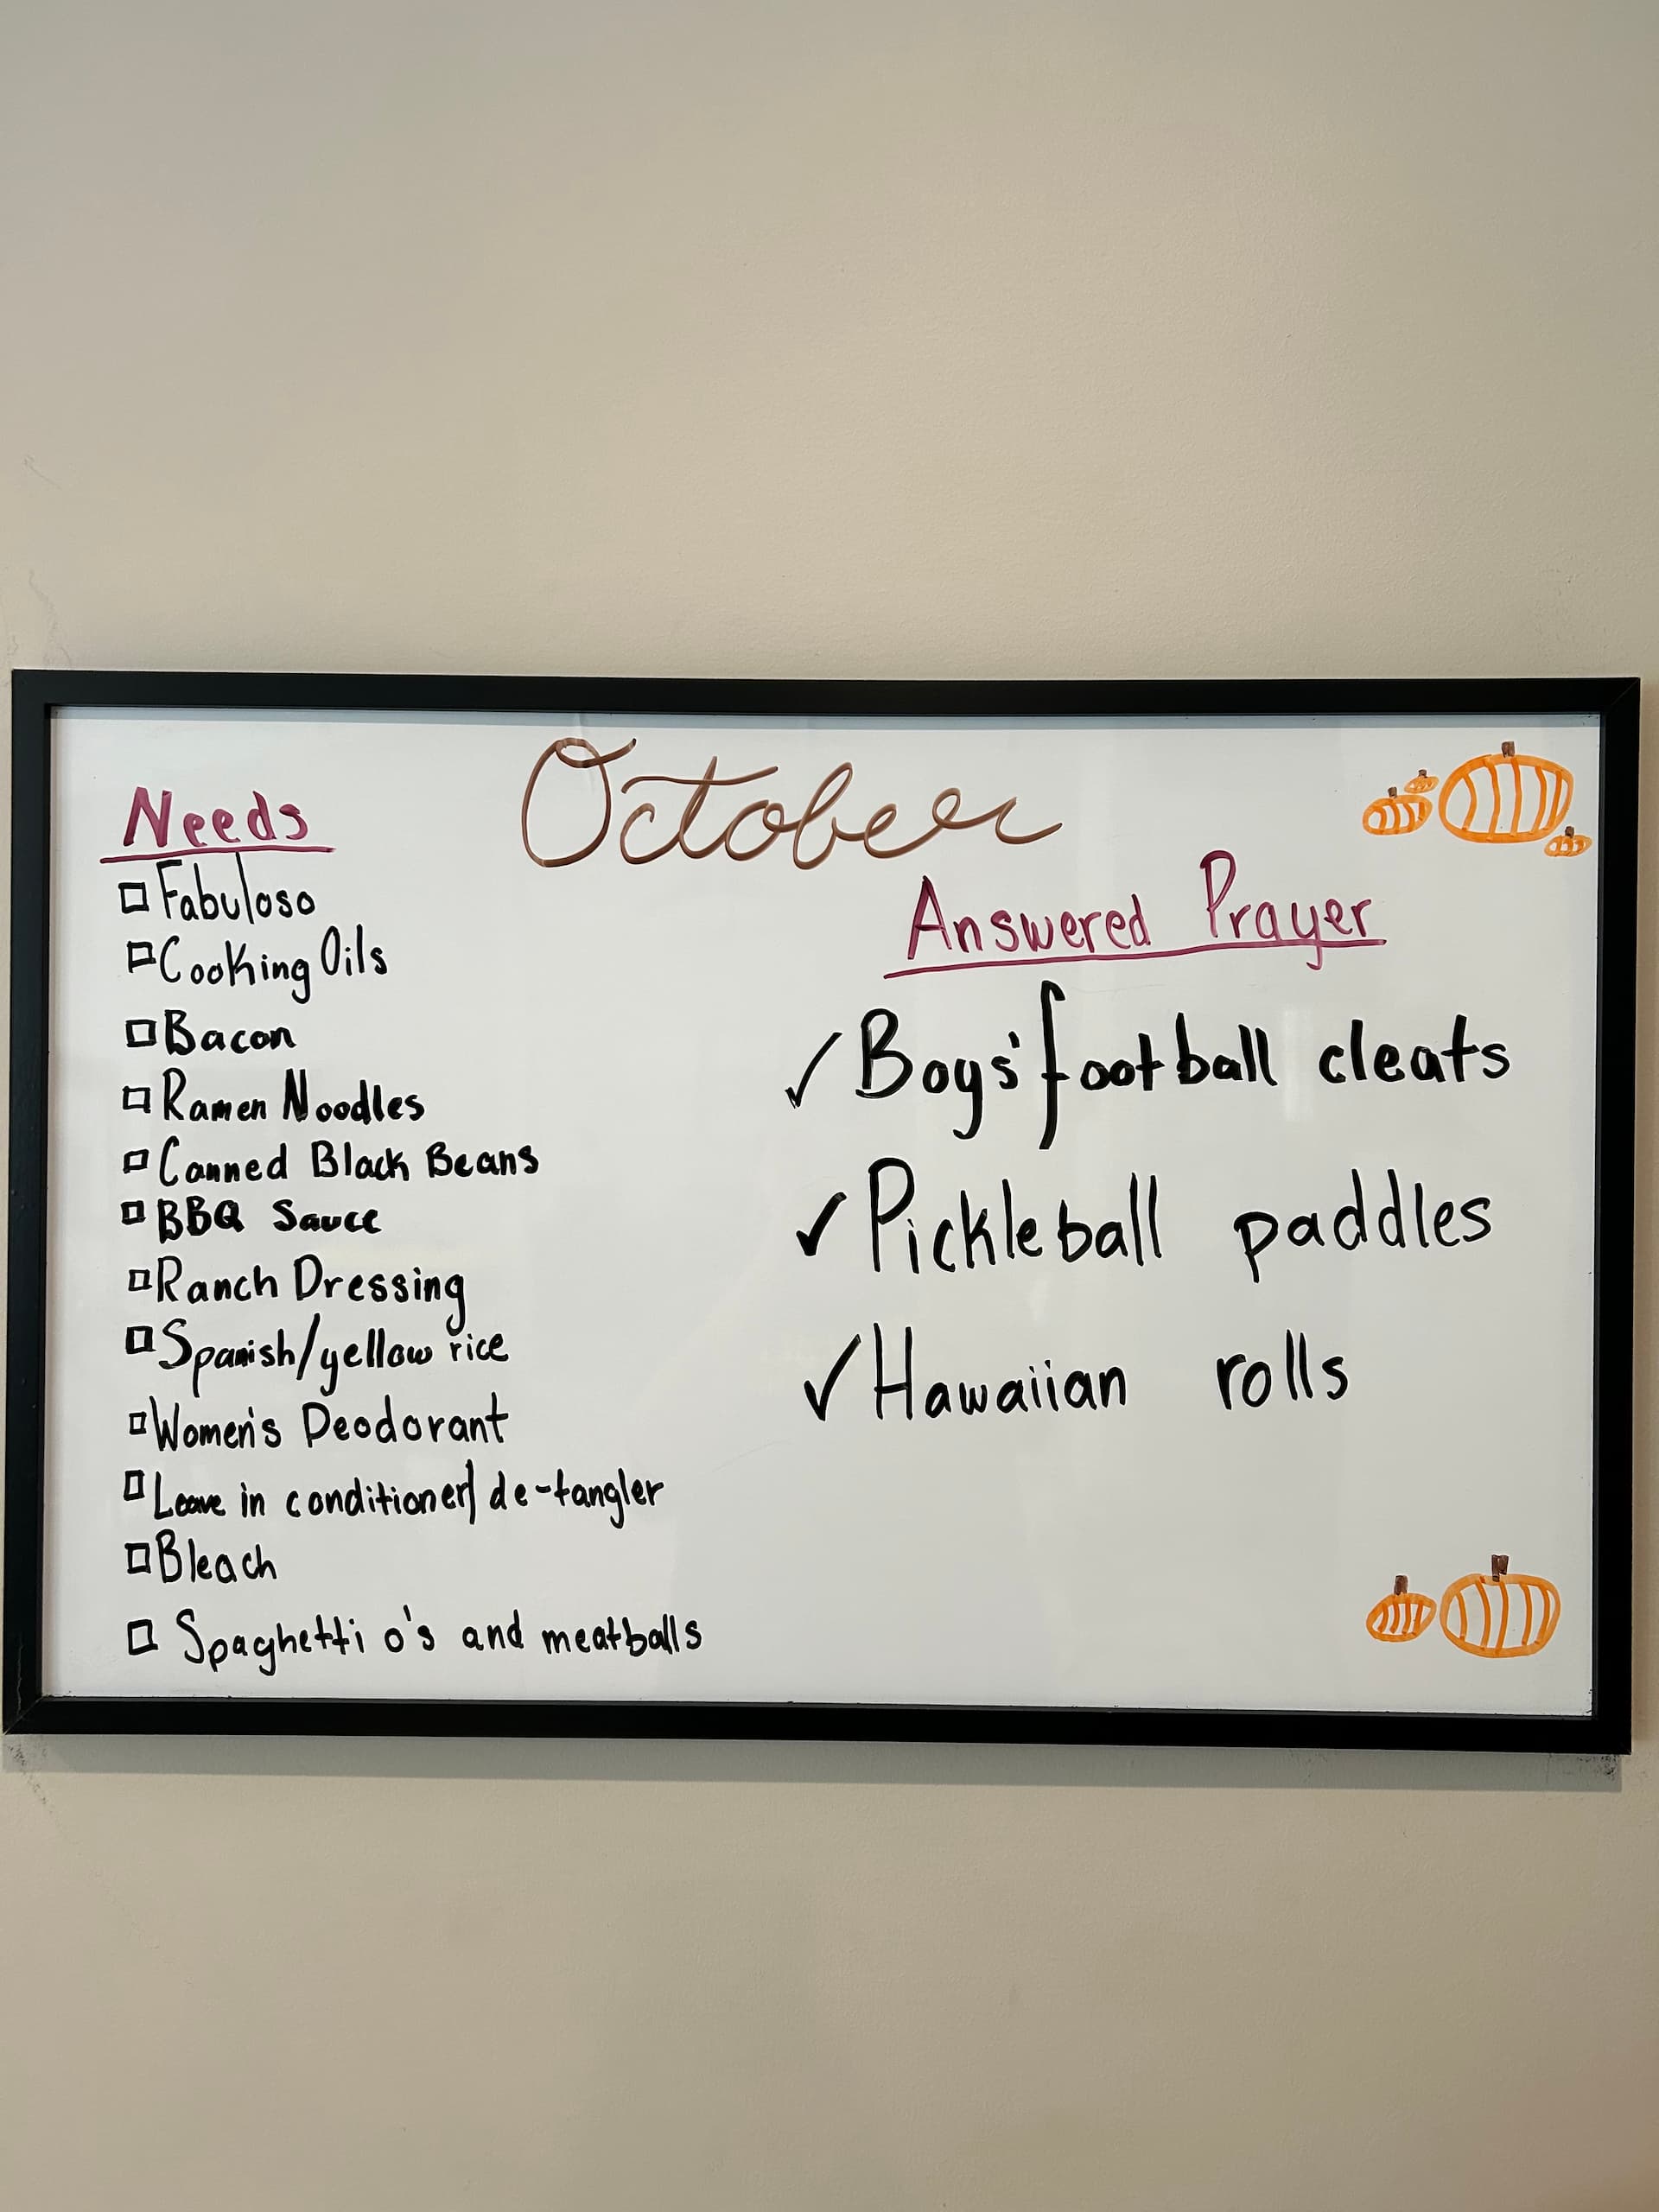 October
Needs
Fabuloso
Cooking Oils
Bacon
Ramen Noodles
Canned Black Beans
BBQ Sauce
Ranch Dressing
Spanish/yellow rice
Women's Deodorant
Leave in conditioner/ de-tangler
Bleach
Spaghetti o's and meatballs
Answered Prayer
✓ Boys' football cleats
✓ Pickleball paddles
✓ Hawaiian rolls